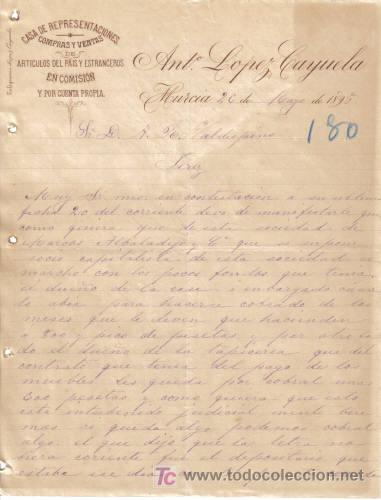 CASA DE REPRESENTACIONES
COMPRAS Y VENTAS
DE
ARTICULOS DEL PAIS Y ESTRANGEROS
EN COMISIÓN
Y POR CUENTA PROPIA.
Antº Lopez Cayuela
Murcia 26 de Mayo de 1895
180
Sr D. A. R. Valdespino
Jerez
Muy Sr. mio: en contestacion a su ultima
fecha 20 del corriente devo de manifestarle que
como quiera que de esta sociedad de
Marcos Albaladejo y Cª que se
socio capitalista de esta sociedad se
marcho con los pocos fondos que tenia
el dueño de la casa i enbargado
lo abia para hacerse cobrado de los
meses que le deven que hacienden
a 800 y pico de pesetas y por otro la
do el dueño de la tapiceria que del
contrato que tenia del pago de los
muebles les queda por cobrar unas
600 pesetas y como quiera que esto
esta intervenido judicial ment bere
mos si queda algo podemos cobrar
algo. el que dijo que la letra no
hera coriente fue el depositario que
estaba ese dia
todocoleccion
www.todocoleccion.net